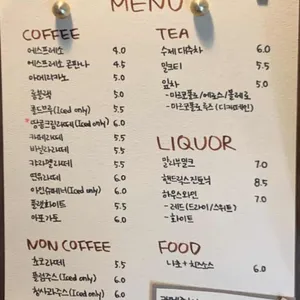 MENU
COFFEE
에스프레소 4.0
에스프레소 콘파나 4.5
아메리카노 5.0
롱블랙 5.0
콜드브루(Iced only) 5.5
*땅콩크림라떼(Iced only) 6.0
카페라떼 5.5
바닐라라떼 5.5
캬라멜라떼 5.5
연유라떼 6.0
아인슈페너(Iced only) 6.0
플랫화이트 5.5
아포가토 6.0
NON COFFEE
초코라떼 5.5
자몽주스(Iced only) 6.0
청사과주스(Iced only) 6.0
TEA
수제 대추차 6.0
밀크티 5.5
잎차 5.0
- 마르코폴로/에로스/볼레로
- 마르코폴로 루즈 (디카페인)
LIQUOR
깔루아밀크 7.0
핸드릭스 진토닉 8.5
하우스와인 7.0
- 레드(드라이/스위트)
- 화이트
FOOD
나쵸+치즈소스 6.0